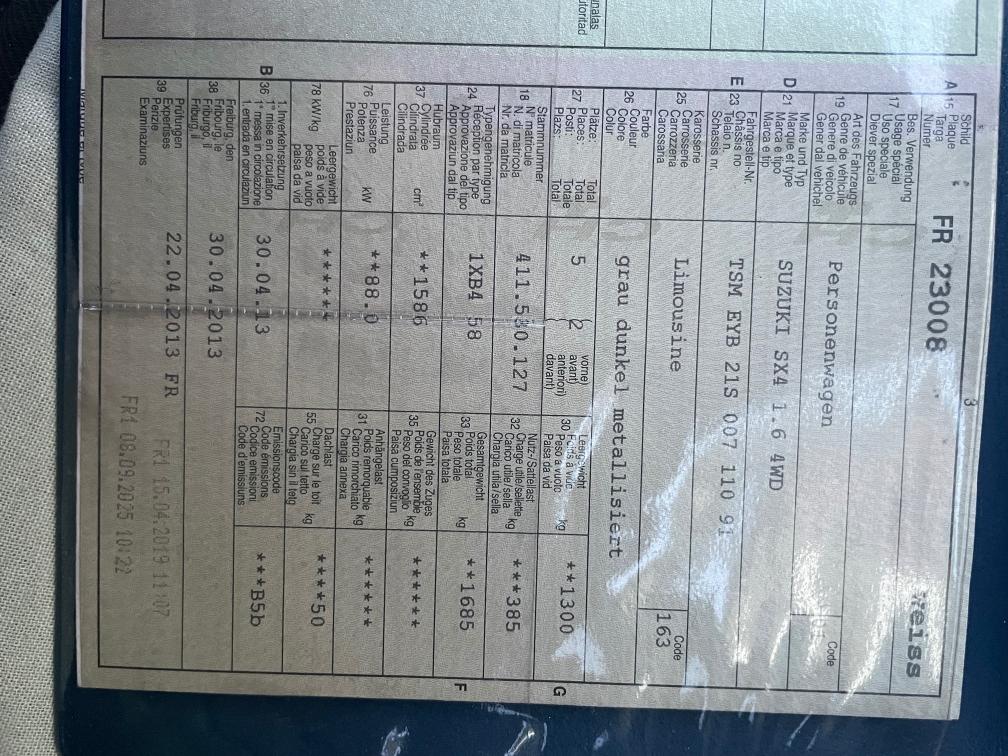 nalas
utoritad
3
A 15 Schild
Plaque
Targa
Numer
FR 23008
weiss
17 Bes. Verwendung
Usage spécial
Uso speciale
Diever spezial
19 Art des Fahrzeugs
Genre de véhicule
Genere di veicolo
Gener dal vehichel
Personenwagen
Code
D 21 Marke und Typ
Marque et type
Marca e tipo
Marca e tip
SUZUKI SX4 1.6 4WD
E 23 Fahrgestell-Nr.
Châssis no
Telaio n.
Schassis nr.
TSM EYB 21S 007 110 91
25 Karosserie
Carrosserie
Carrozzeria
Carossaria
Limousine
Code
163
26 Farbe
Couleur
Colore
Colur
grau dunkel metallisiert
27 Plätze: Total
Places: Total
Posti: Totale
Plazs: Total
5 2
vorne)
avant)
anteriori)
davant)
30 Leergewicht
Poids à vide
Peso a vuoto
Paisa da vid
kg
**1300
G
18 Stammnummer
N° matricule
N. di matricola
Nr. da matricla
411.530.127
32 Nutz-/Sattellast
Charge utile/sellette
Carico utile/sella
Chargia utila/sella
kg
***385
24 Typengenehmigung
Réception par type
Approvazione del tipo
Approvaziun dal tip
1XB4 58
33 Gesamtgewicht
Poids total
Peso totale
Paisa totala
kg
**1685
F
37 Hubraum
Cylindrée
Cilindrata
Cilindrada
cm³
**1586
35 Gewicht des Zuges
Poids de l'ensemble
Peso del convoglio
Paisa cumposiziun
kg
******
76 Leistung
Puissance
Potenza
Prestaziun
kW
**88.0
31 Anhängelast
Poids remorquable
Carico rimorchiato
Chargia annexa
kg
******
78 kW/kg
Leergewicht
poids à vide
peso a vuoto
paisa da vid
******
55 Dachlast
Charge sur le toit
Carico sul tetto
Chargia sin il tetg
kg
****50
B 36 1. Inverkehrsetzung
1re mise en circulation
1a messa in circolazione
1. entrada en circulaziun
30.04.13
72 Emissionscode
Code émissions
Codice emissioni
Code d'emissiuns
***B5b
38 Freiburg den
Fribourg le
Friburgo, il
Friburg, il
30.04.2013
39 Prüfungen
Expertises
Perizie
Examinaziuns
22.04.2013 FR
FR1 15.04.2019 11:07
FR1 08.09.2025 10:22